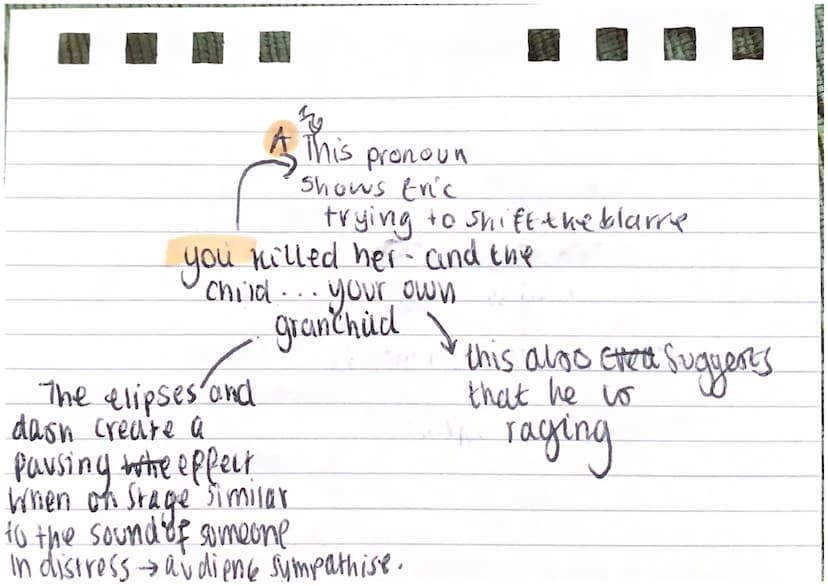 A This pronoun
shows Eric
trying to shift the blame
you killed her - and the
child... your own
granchild
this also suggests
that he is
raging
The elipses and
dash create a
pausing effect
when on stage similar
to the sound of someone
in distress → audience sympathise.